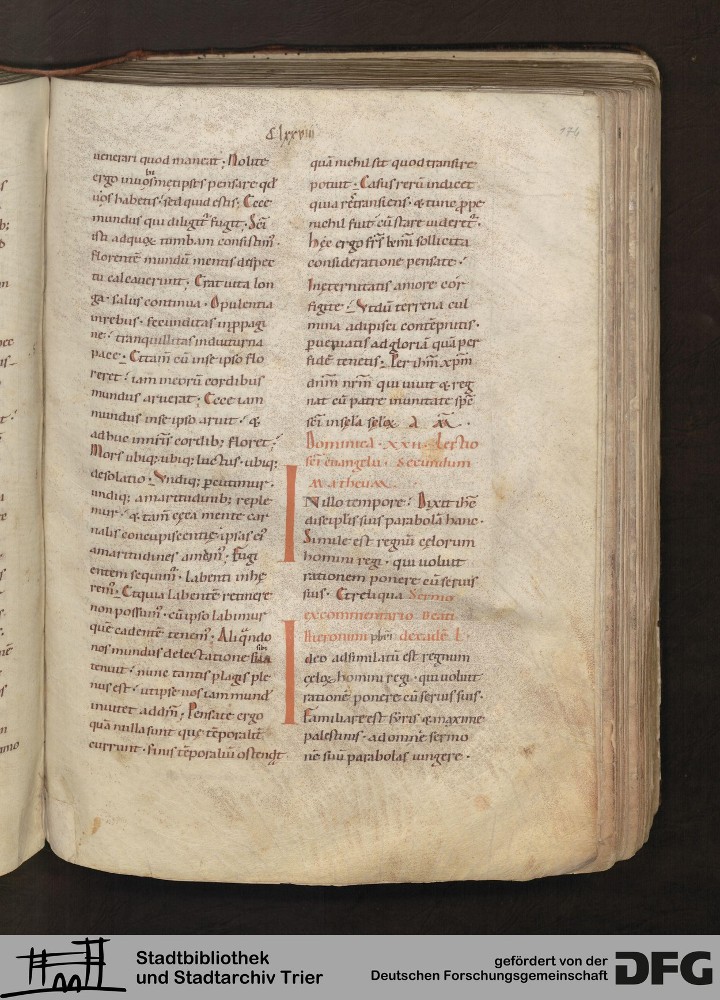 Clxxviii
174
venerari quod maneat; Nolite
ergo in vosmetipsis pensare qd
vos habetis; sed quid estis; Ecce
mundus qui diligit᷑ fugit. Sc̄i
isti ad quoꝝ tumbam consistim᷒.
florentē mundū mentis despec
tu calcaverunt; Erat vita lon
ga. salus continua. Opulentia
in rebus. fecunditas in ppagi
ne. tranquillitas in diuturna
pace. Et tam̄ cū in se ipso flo
reret. iam in eorū cordibus
mundus aruerat; Ecce iam
mundus in se ipso aruit. &
adhuc in nr̄is cordib; floret;
Mors ubiq; ubiq; luctus. ubiq;
desolatio. Undiq; percutimur.
undiq; amaritudinib; reple
mur. & tam̄ cęca mente car
nalis concupiscentię ipsas ei᷒
amaritudines amam᷒. fugi
entem sequim᷒. labenti inhę
rem᷒. Et quia labentē retinere
non possum᷒. cū ipso labimur
quē cadentē tenem᷒. Aliqndo
nos mundus delectatione sibi
tenuit. nunc tantis plagis ple
nus est. ut ipse nos iam mund᷒
invitet ad dm̄; Pensate ergo
quā nulla sint quę tēporalit᷑
currunt. finis tēporaliū ostendit
quā nichil sit quod transire
potuit. Casus rerū indicet
quia res transiens. & tunc ꝓpe
nichil fuit cū stare videret᷑.
hęc ergo frs̄ kmi sollicita
consideratione pensate.
In eternitatis amore cor
figite. Ut dū terrena cul
mina adipisci contēpnitis.
perveniatis ad gloriā quā per
fidē tenetis. Per ihm̄ xpm̄
dnm̄ nrm̄ qui vivit & reg
nat cū patre in unitate spc̄
sc̄i in sclā scloꝝ AM.
Dominica .XXII. Lectio
sc̄i euangelii. Secundum
Matheum.
IN illo tempore. Dixit ihc̄
discipl̄is suis parabolā hanc.
Simile est regnū cęlorum
homini regi. qui voluit
rationem ponere cū servis
suis. Et reliqua Sermo
ex commentario beati
Hieronimi pbr̄i de eadē. L.
Ideo adsimilatū est regnum
cęloꝝ homini regi. qui voluit
rationē ponere cū servis suis.
Familiare est syris & maxime
palestinis. ad omnē sermo
nē suū parabolas iungere.
Stadtbibliothek
und Stadtarchiv Trier
gefördert von der
Deutschen Forschungsgemeinschaft
DFG